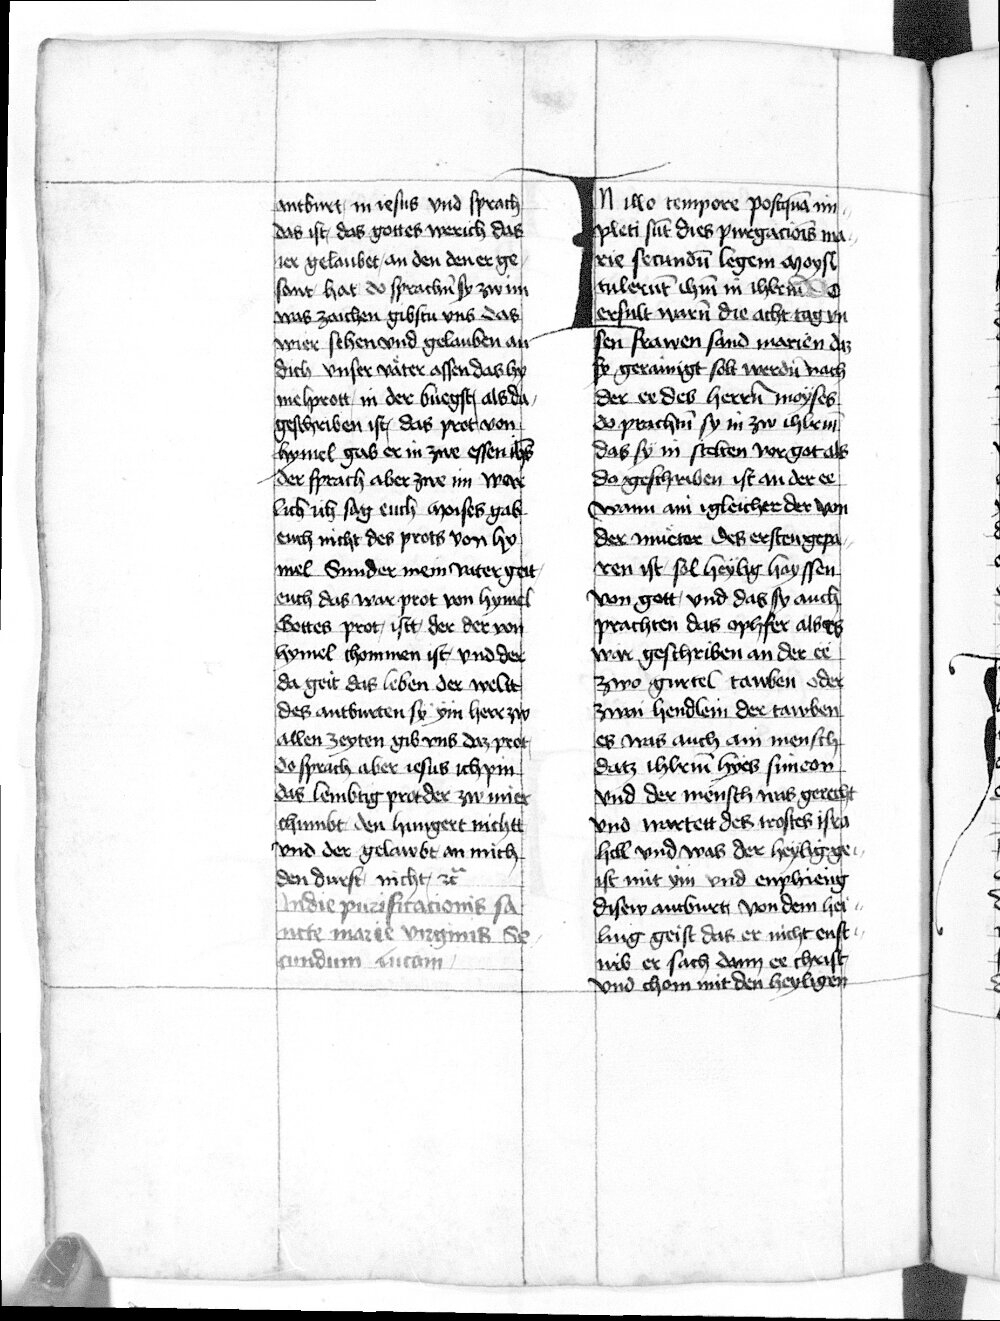 antburt in iesus vnd sprach
das ist das gottes werich das
ier gelaubet an den den er ge
sant hat do sprachn̄ sy zw im
was zaichen gibstu vns das
wier sehen vnd gelauben an
dich vnser väter assen das hy
melprott in der buegst als da
geschriben ist das prot von
hymel gab er in zwe essen ihs̄
der sprach aber zwe im war
lich ich sag euch moises gab
euch nicht des prots von hy
mel Sunder mein vater geit
euch das war prot von hymel
Gottes prot istt der der von
hymel chommen ist vnd der
da geit das leben der weltt
des antburten sy ym herr zw
allen zeyten gib vns daz prot
do sprach aber iesus ich pin
das lembtig prot der zw mier
chumbt den hungert nichtt
vnd der gelawbt an mich
den durst nicht ⁊c̄
In die purificacionis sa
ncte marie virginis Se
cundum lucam
IN illo tempore postquā im
pleti sūt dies purgaciōis ma
rie secundū legem moysi
tulerūt ihm̄ in ihrlm̄ DO
erfult warn̄ die acht tag vn
sen frawen sand marien daz
sy gerainigt solt werdn̄ nach
der ee des herrn̄ moyses
do prachtn̄ sy in zw ihrlm̄
das sy in stelten vor got als
do geschriben ist an der ee
wann ain igleicher der von
der mueter des ersten gepa
ren ist sol heylig hayssen
von gott vnd das sy auch
prachten das ophfer als es
war geschriben an der ee
zwo gurtel tawben oder
zwai hendlein der tawben
es was auch ain mensch
datz ihrlm̄ hyes simeon
vnd der mensch was gerecht
vnd wartett des trostes isra
hell vnd was der heylig ge
ist mit ym vnd enphieng
disew antburtt von dem hei
ling geist das er nicht enst
urb er sach dann ee christ
vnd chom mit den heyligen